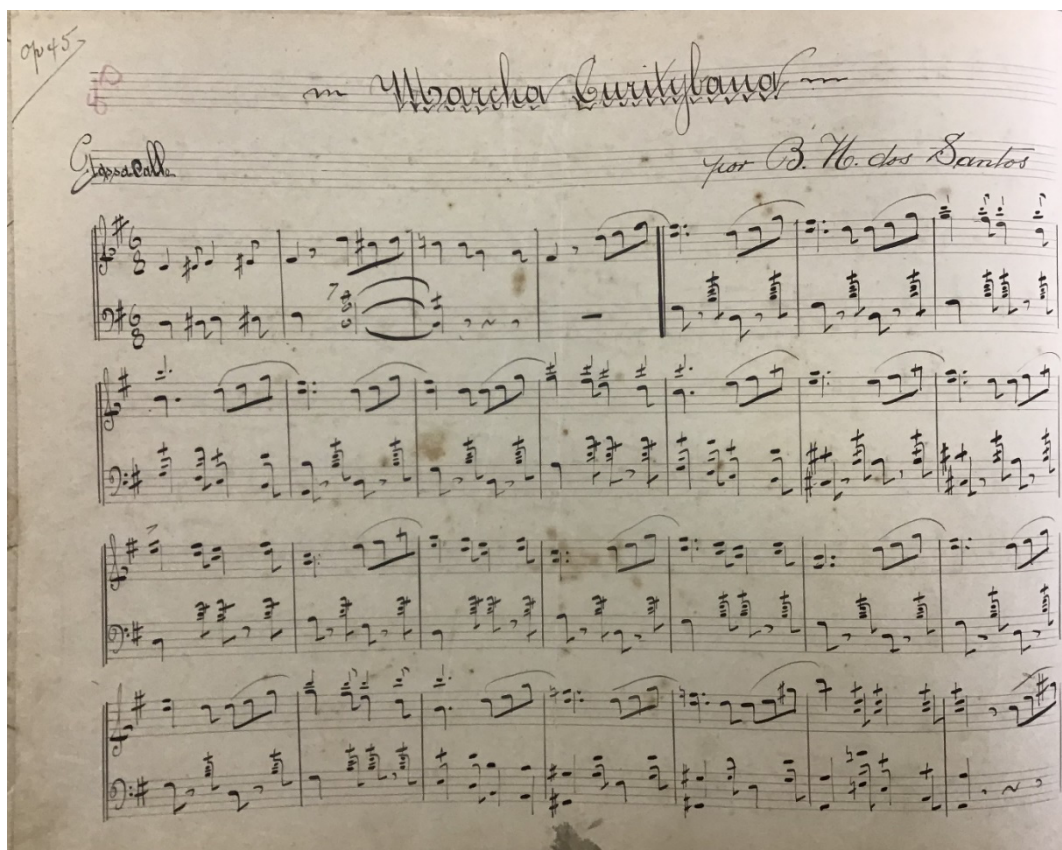 op 45
Marcha Curitybana
Passacalle
por B. N. dos Santos